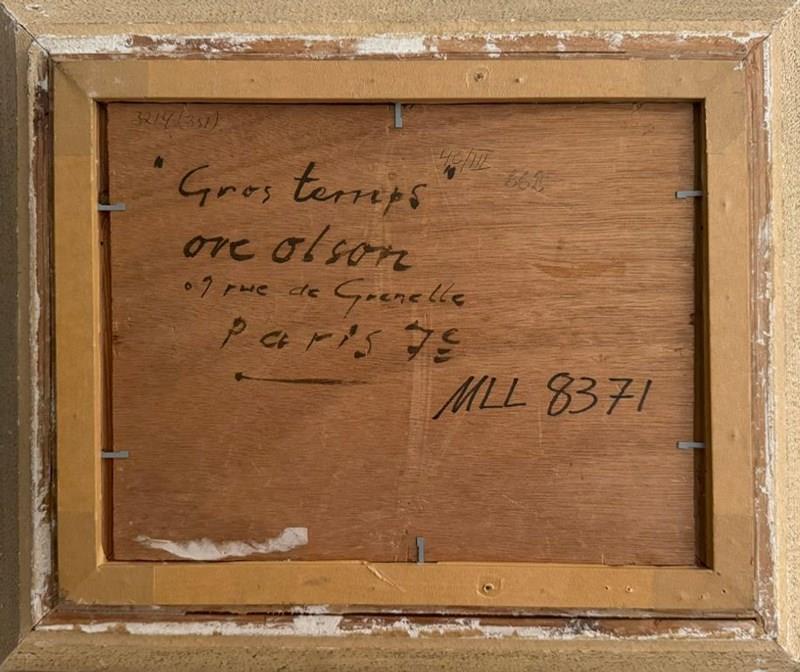 3214(351)
40/III
662
"Gros temps"
ove olson
09 rue de Grenelle
Paris 7e
MLL 8371